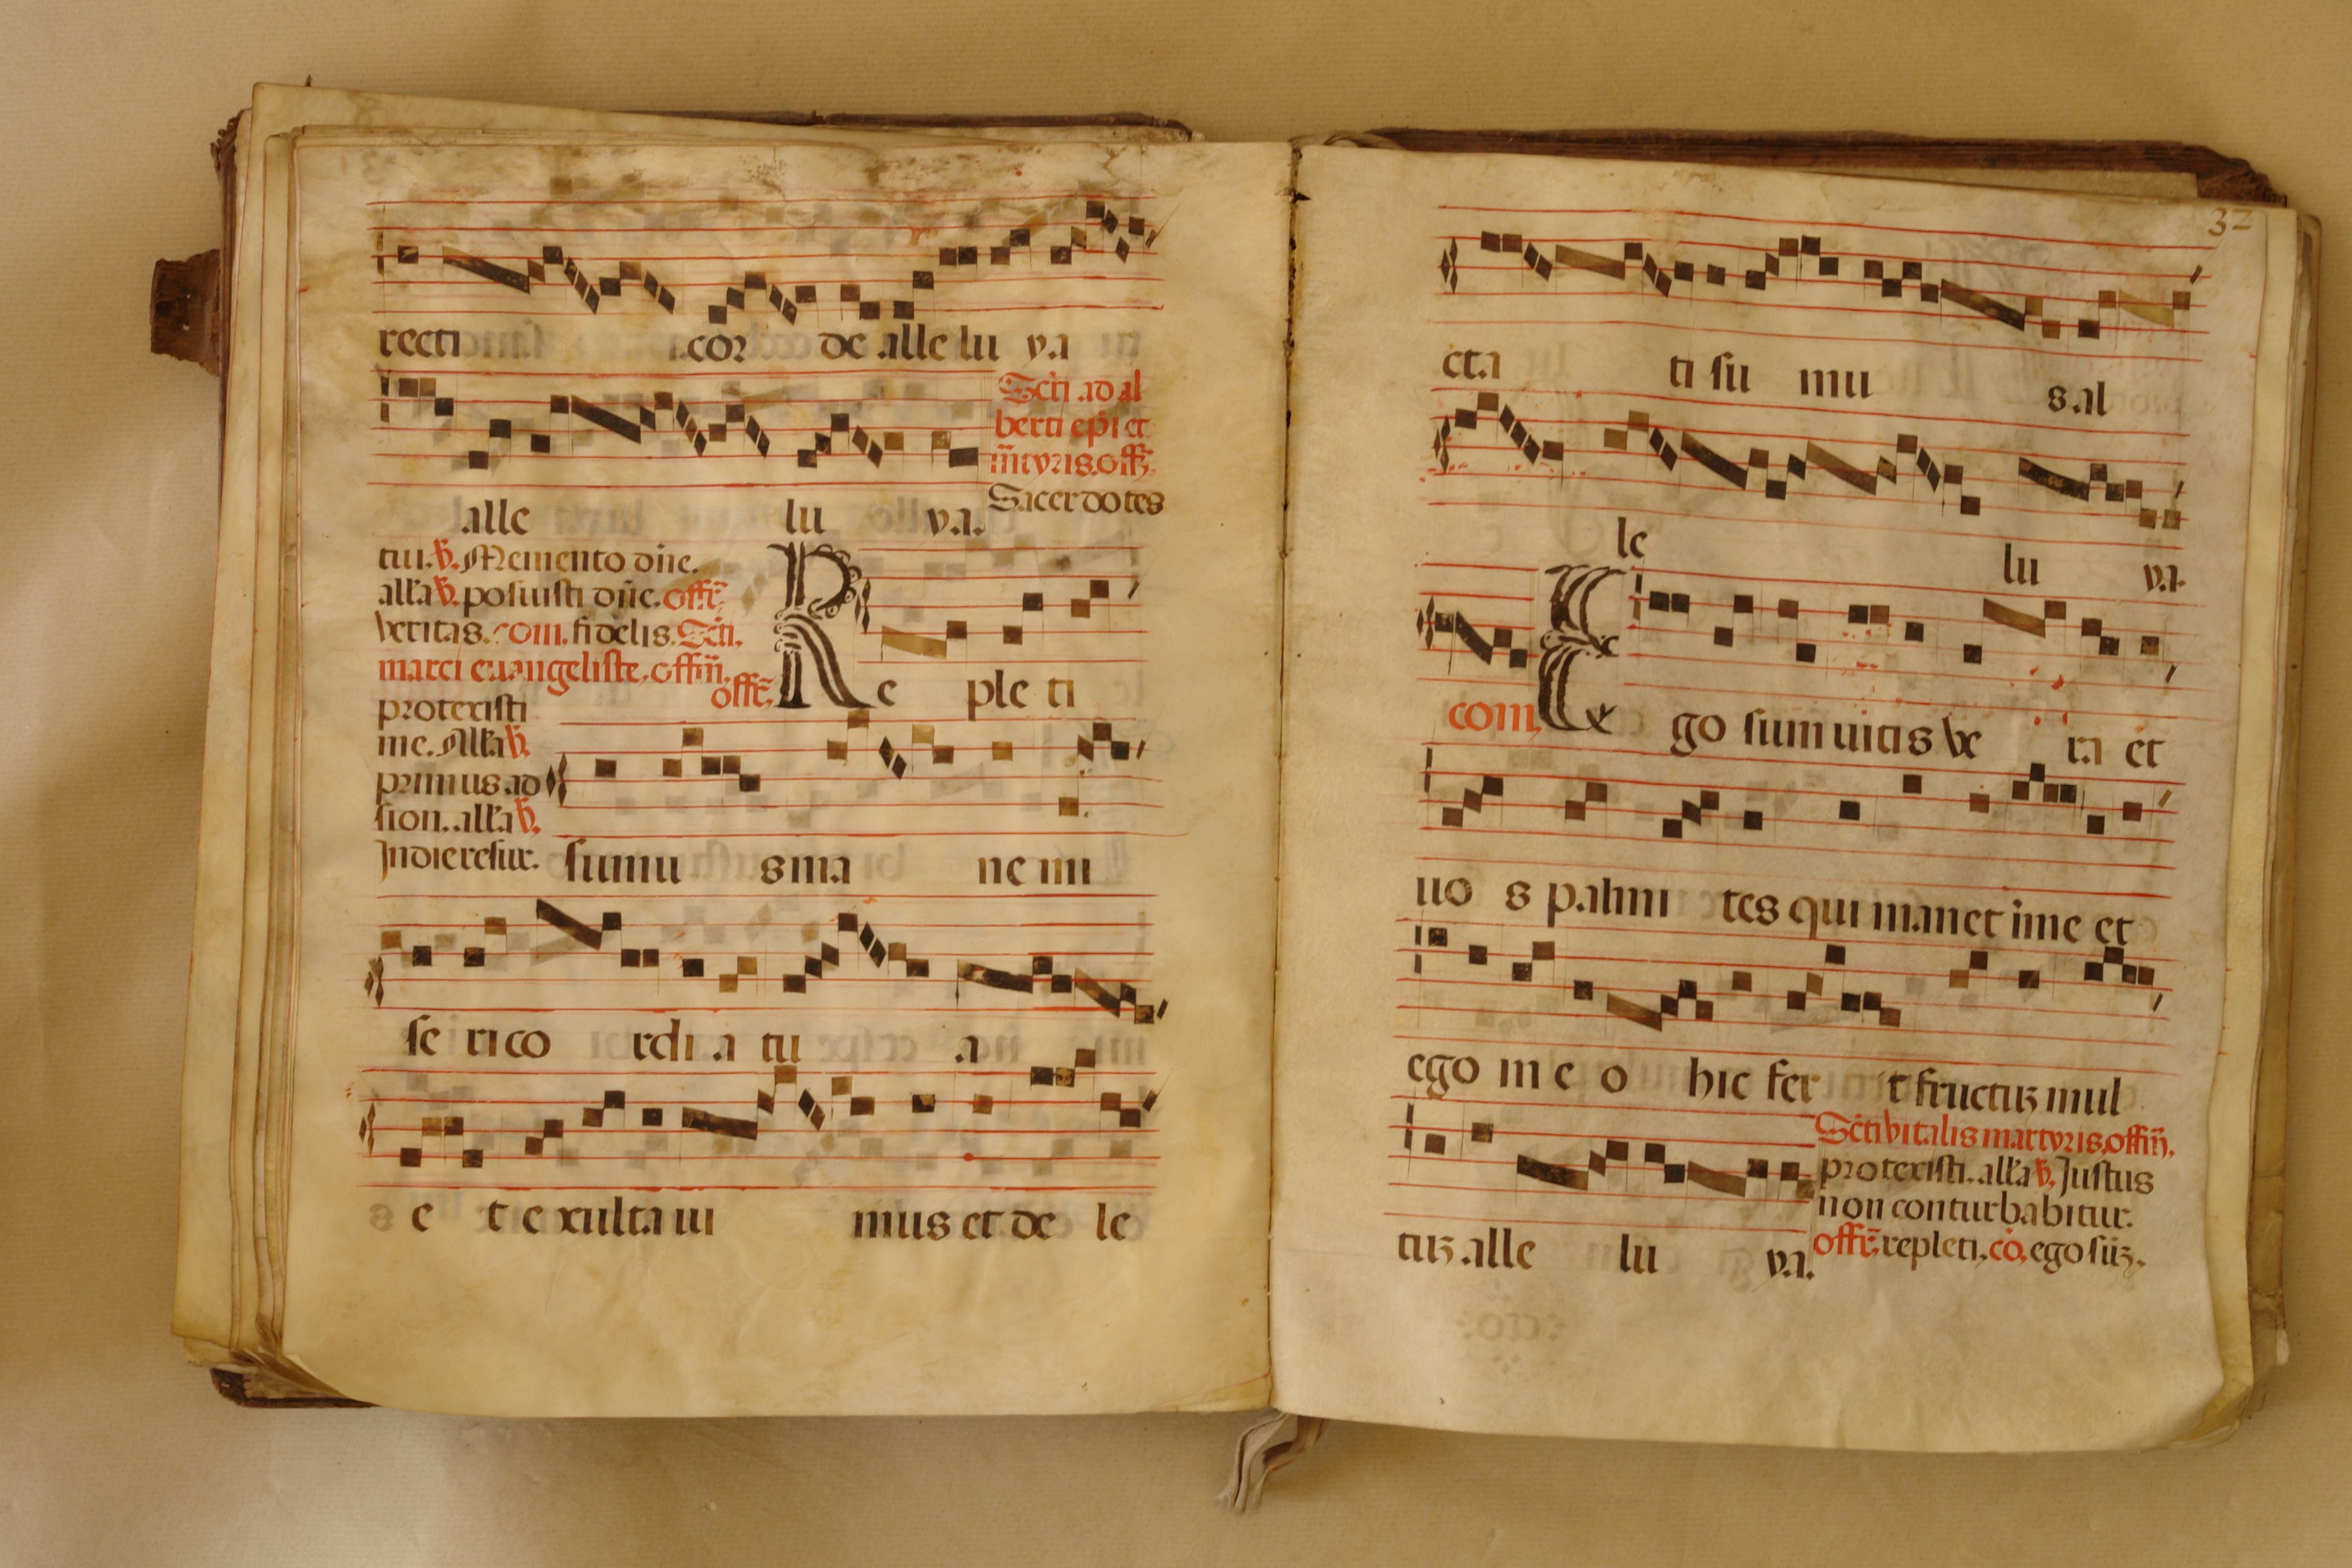 recti cor de alle lu ya
Scti adal
berti epi et
mrtyris. offm.
Sacerdotes
alle lu ya.
tui. V. Memento dñe.
alla V. posuisti dñe. offr.
Veritas. com. fidelis. Scti.
marci euangeliste. offm.
offr. Re ple ti
protexisti
me. Alla V.
primus ad
sion. alla V.
In die resur. sumu s ma ne mi
se rico rdi a tu a
e t e xulta ui mus et de le
32
cta ti su mu s al
le lu ya.
com. Ego sum uitis ve ra et
uo s palmi tes qui manet ime et
ego in e o hic fer t fructuȝ mul
Scti vitalis martyris. offm.
protexisti. alla V. Justus
non conturbabitur.
offr. repleti. cō. ego sūȝ.
tuȝ alle lu ya.